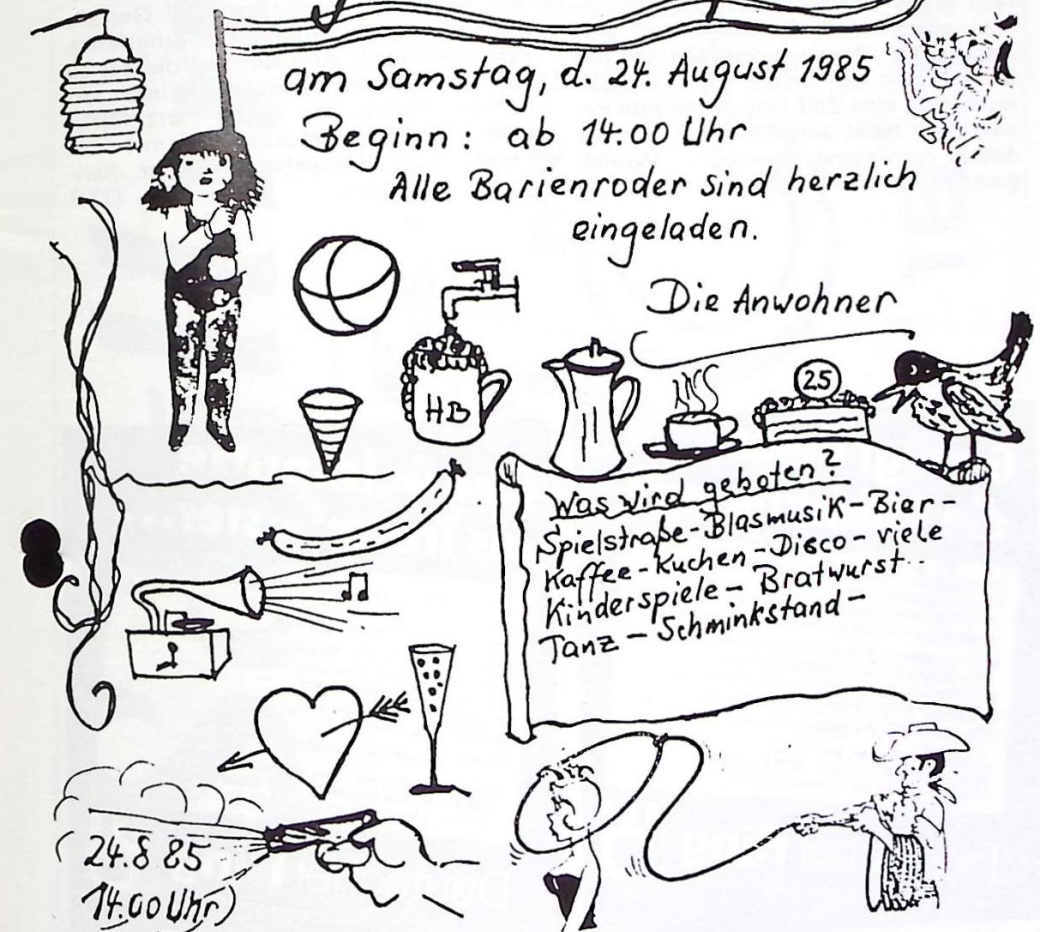 am Samstag, d. 24. August 1985
Beginn: ab 14.00 Uhr
Alle Barienroder sind herzlich
eingeladen.
Die Anwohner
HB
25
Was wird geboten?
Spielstraße-Blasmusik-Bier-
Kaffee-Kuchen-Disco-viele
Kinderspiele-Bratwurst-
Tanz-Schminkstand-
24.8 85
14.00 Uhr)